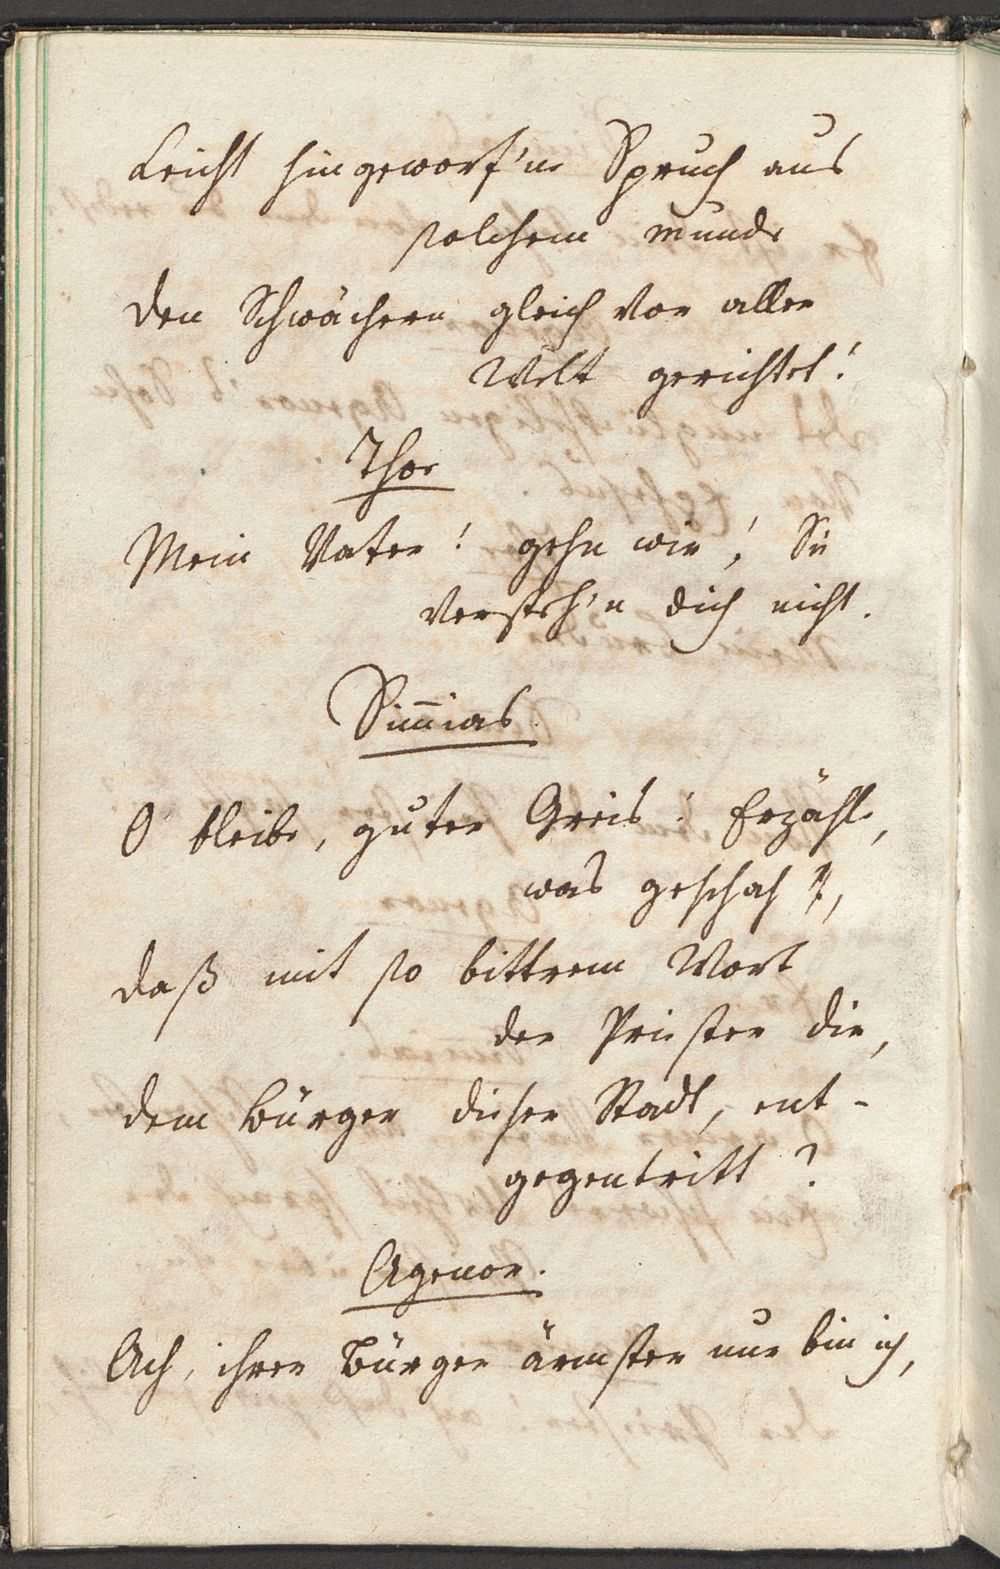 Leicht hingeworf'ne Spruch aus
solchem Munde
den Schwächern gleich vor aller
Welt gerichtet!
Thor
Mein Vater! gehn wir! Sie
versteh'n dich nicht.
Sim̅ias.
O bleibe, guter Greis! Erzähle,
was geschah,
daß mit so bittrem Wort
der Priester dir,
dem Bürger dieser Stadt, ent-
gegentritt?
Agenor.
Ach, ihrer Bürger ärmster nur bin ich,